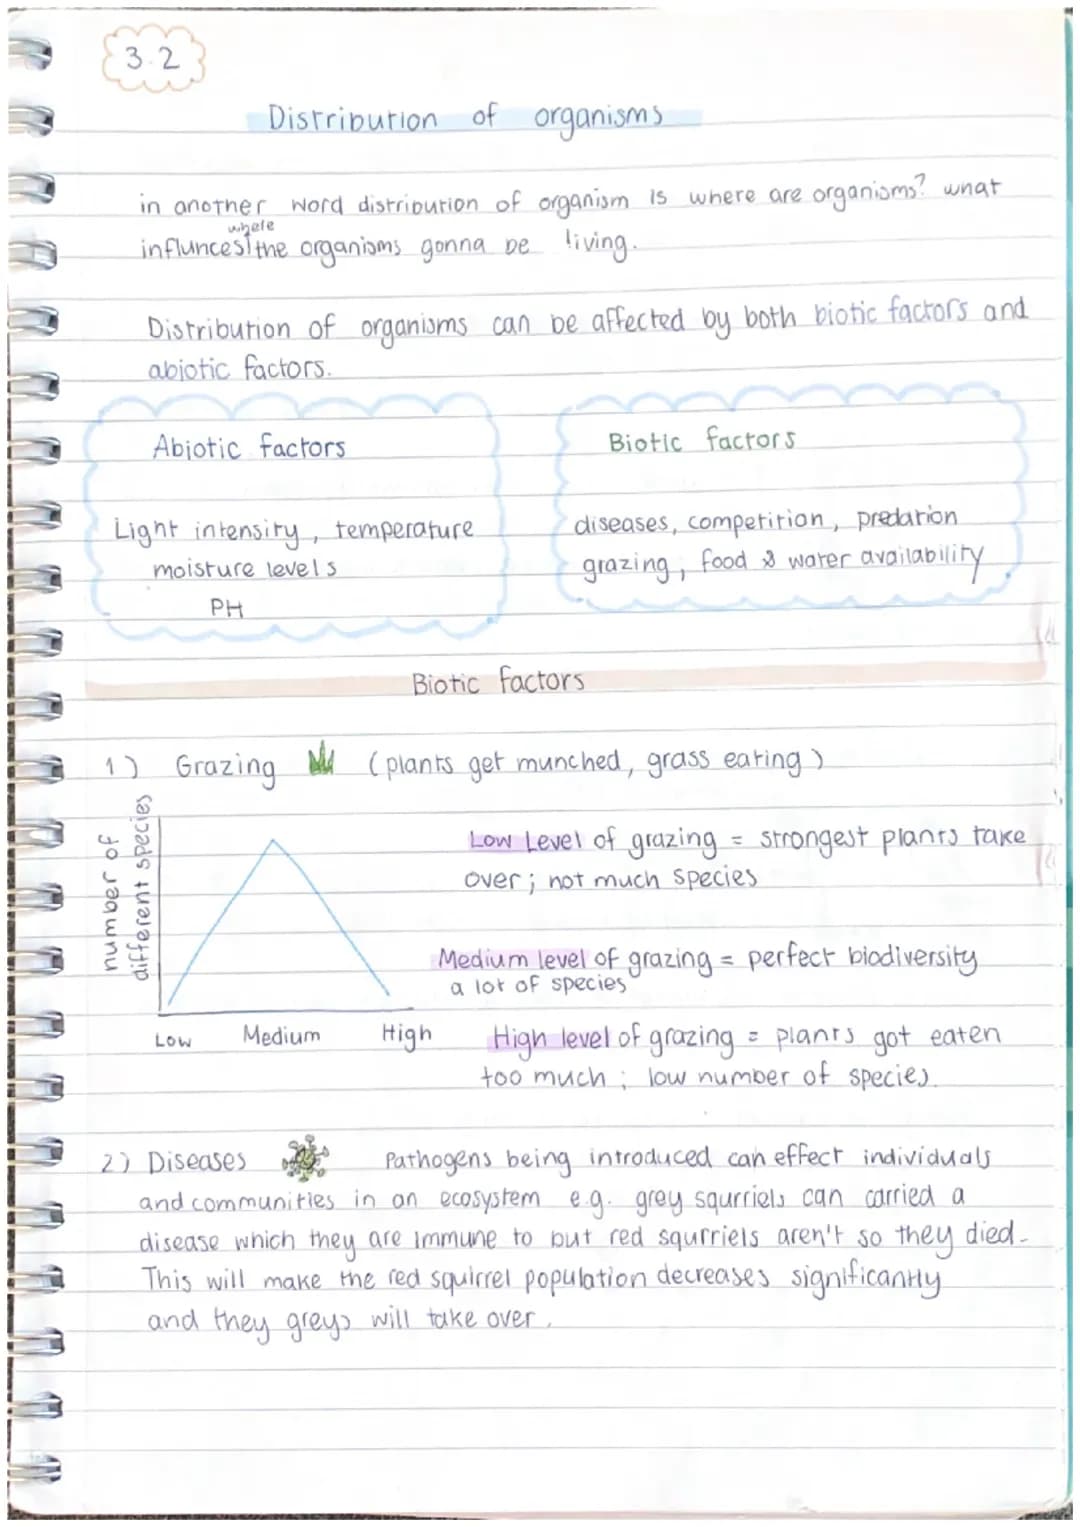 3.2
Distribution of organisms
in another word distribution of organism is where are organisms? what
where
influnces the organisms gonna be living.
Distribution of organisms can be affected by both biotic factors and
abiotic factors.
Abiotic factors
Light intensity, temperature
moisture levels
PH
Biotic factors
diseases, competition, predation
grazing, food & water availability
Biotic factors
1) Grazing (plants get munched, grass eating)
number of
different species
Low Medium High
Low Level of grazing = strongest plants take
over; not much species
Medium level of grazing = perfect biodiversity
a lot of species
High level of grazing = plants got eaten
too much; low number of species.
2) Diseases Pathogens being introduced can effect individuals
and communities in an ecosystem e.g. grey squrriels can carried a
disease which they are immune to but red squrriels aren't so they died.
This will make the red squirrel population decreases significantly
and they greys will take over.